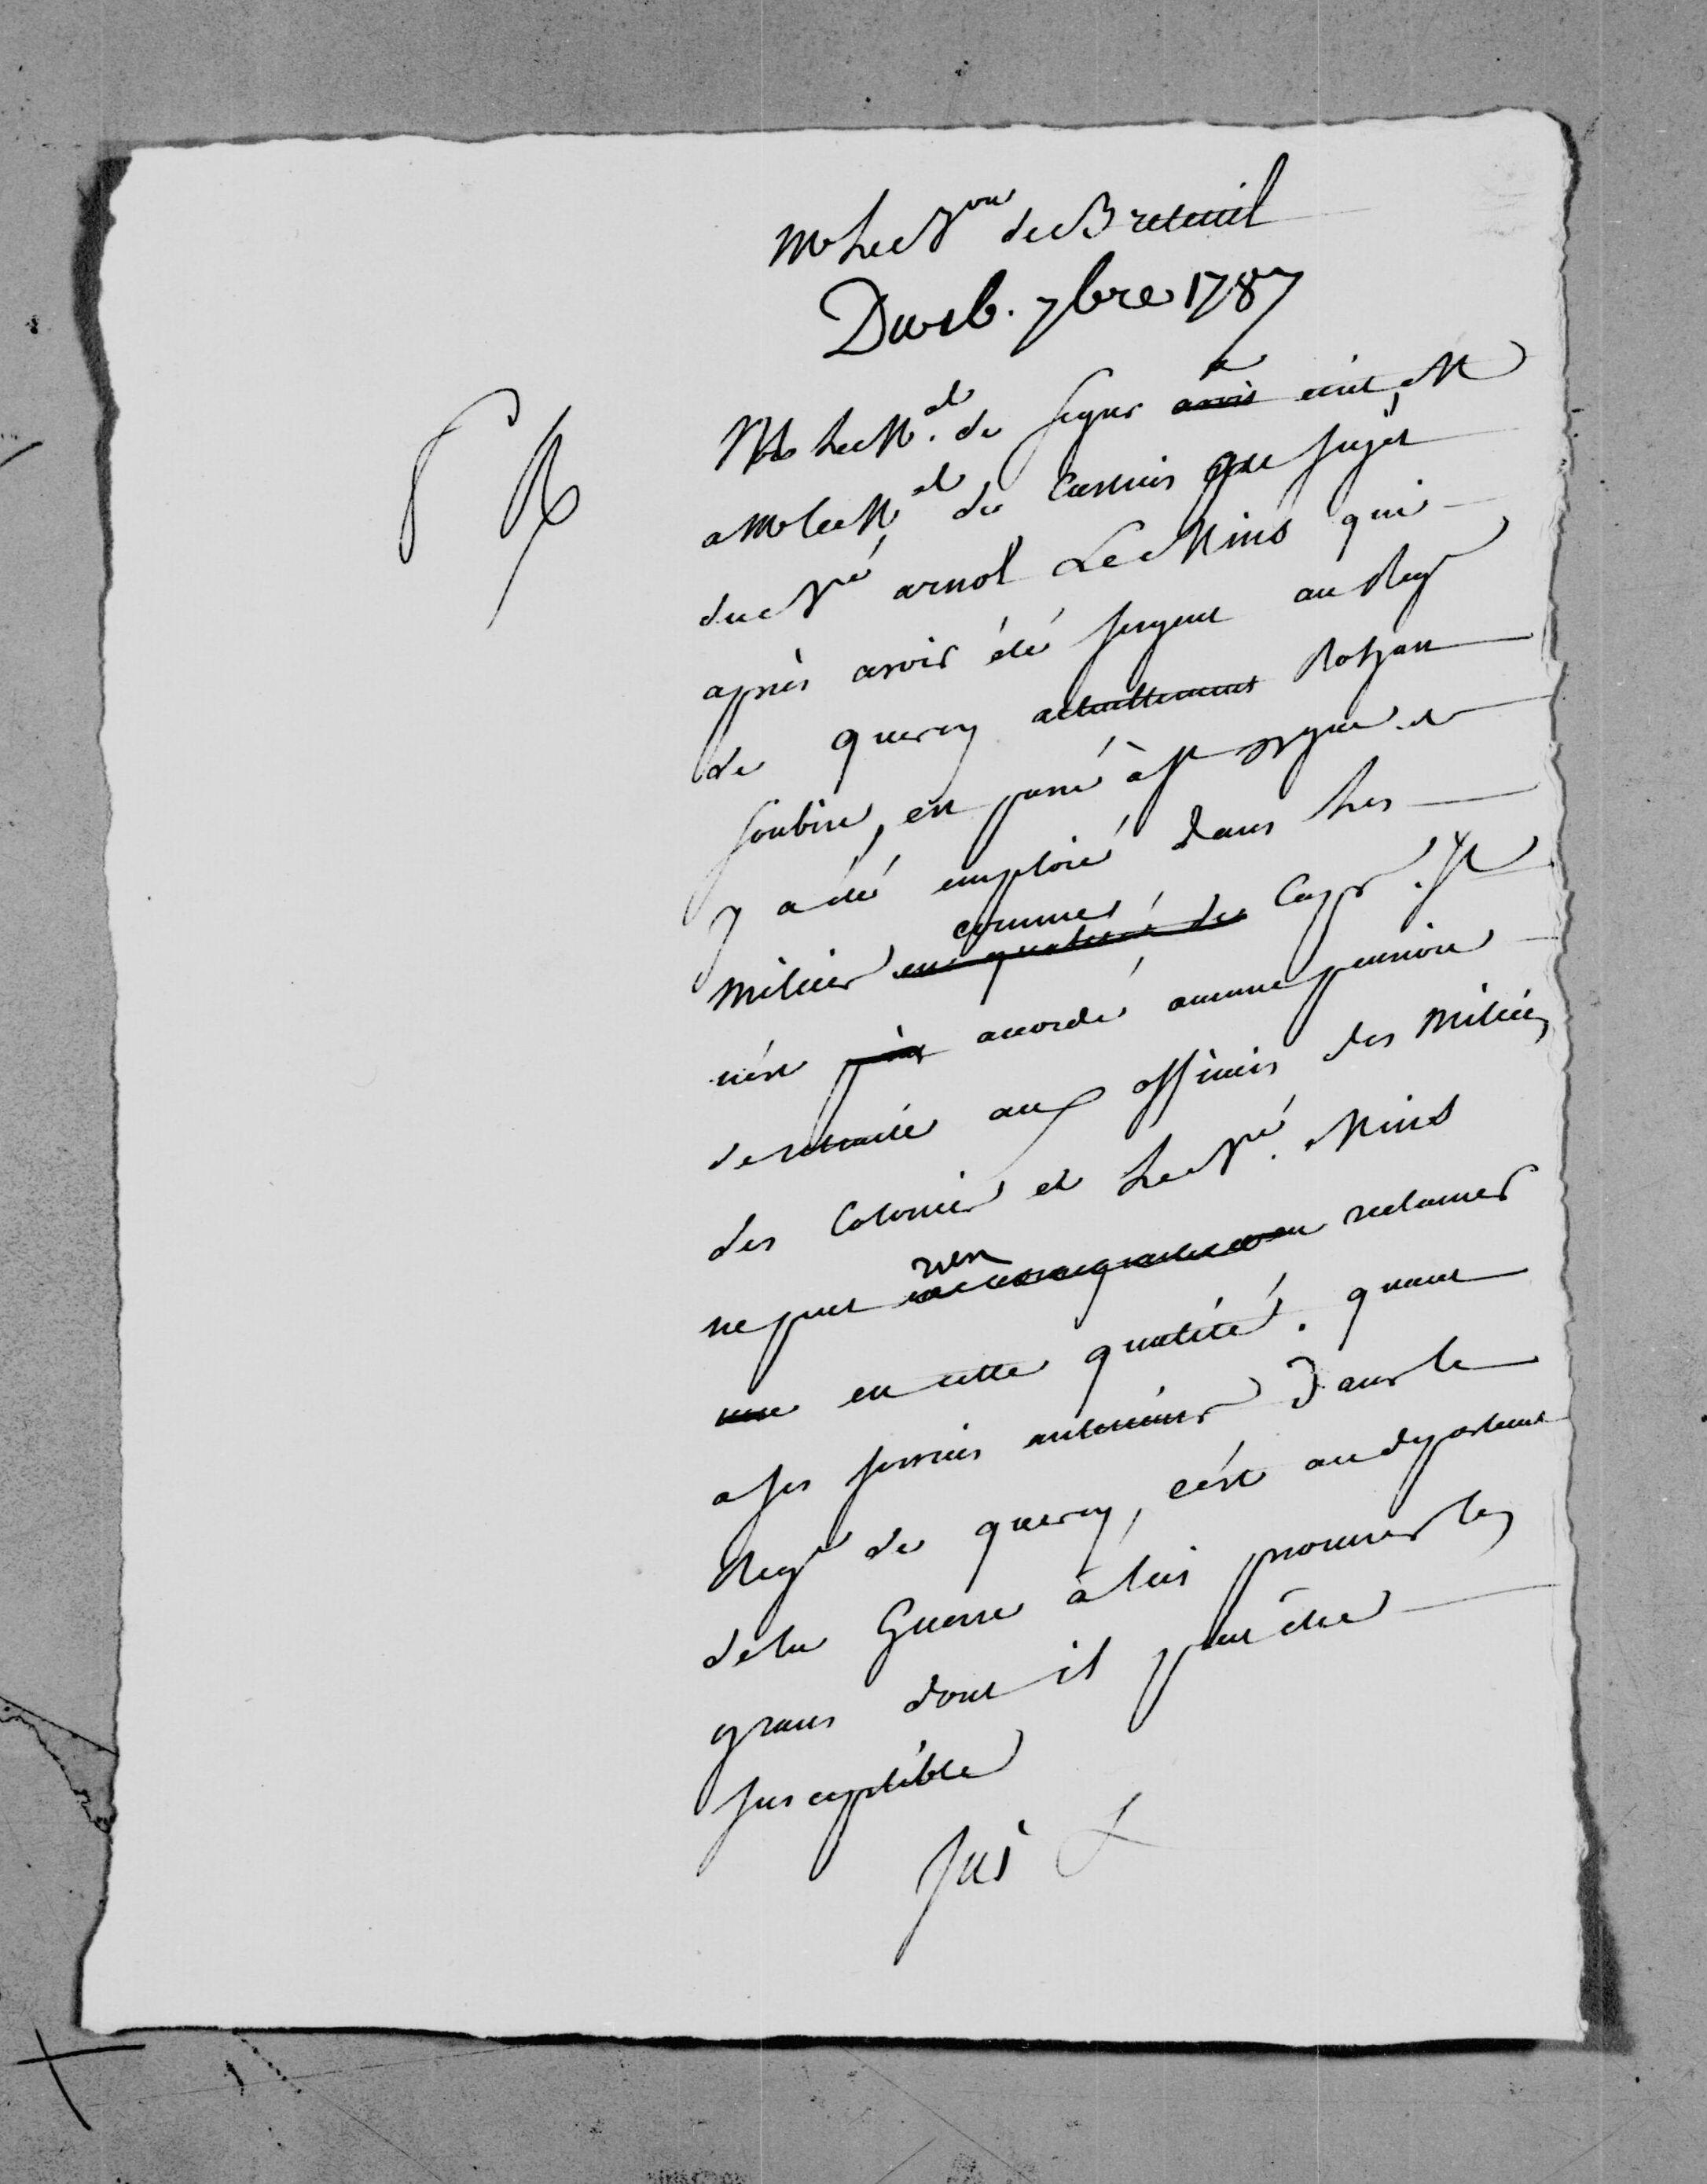 M. Le B.on de Breteuil
Du 16. 7bre 1787
M. Le M.al de Segur a avois écrit
a M. le M.al de Castries au sujet
du S.r arnol Le Nind qui
après avoir été sergent au Reg.t
de quercy actuellement Rohan
soubise, est passé à S.t Dgue et
y a été emploié dans les
Milices comme en qualité de Capp.e Il
n'est pas accordé aucune pension
de retraite aux officiers des Milices
des Colonies et Le S.r Nind
ne peut rien reclamer
une en cette qualité. quant
a ses services anterieurs dans le
Reg.t de quercy, c'est au departem.t
de la Guerre à lui procurer les
graces dont il peut être
susceptible
Jus